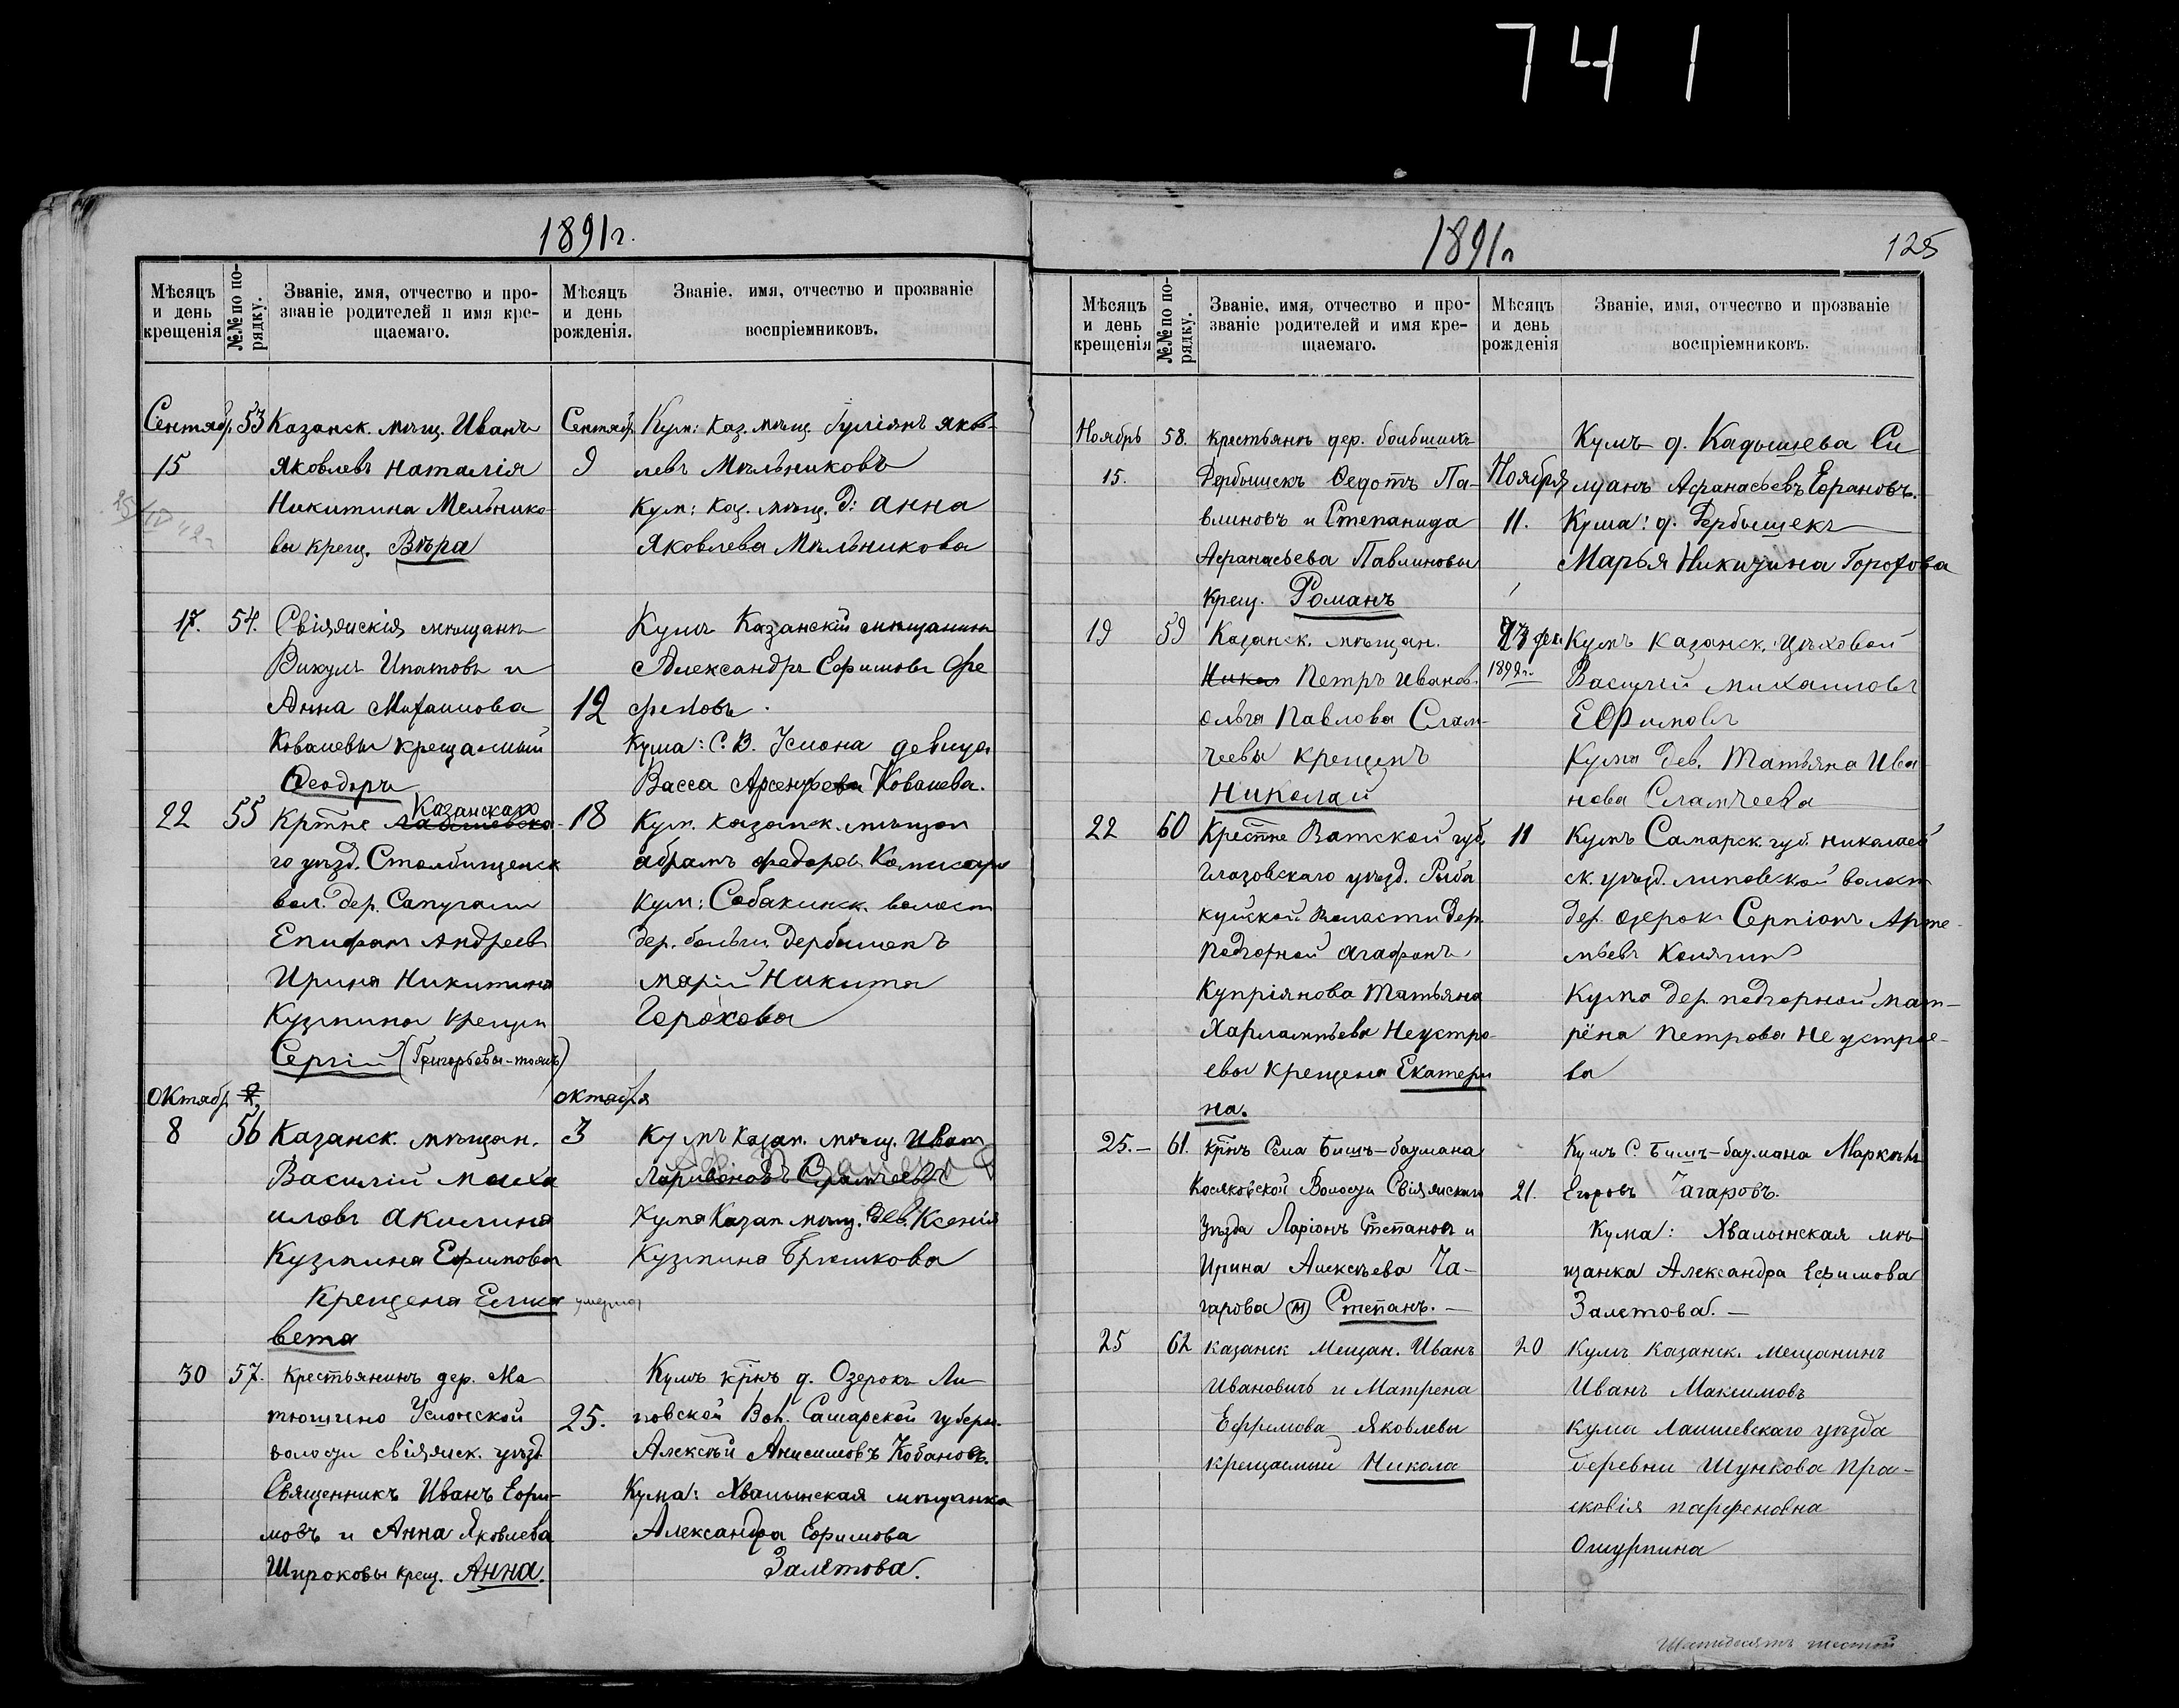 741
1891г.
Мѣсяцъ и день крещенія
№№ по порядку.
Званіе, имя, отчество и прозваніе родителей и имя крещаемаго.
Мѣсяцъ и день рожденія.
Званіе, имя, отчество и прозваніе воспріемниковъ.
Сентябр. 53 Казанск. мѣщ. Иванъ
15 Яковлевъ Наталія
Никитина Мельнико-
вы крещ. Вѣра
Сентяб. Кум: Каз. мѣщ. Іуліянъ Яков-
9 левъ Мѣльниковъ
Кум: Каз. мѣщ. д: Анна
Яковлева Мѣльникова
17. 54. Свіяжскія мѣщане
Викулъ Ипатовъ и
Анна Михаилова
Ковалевы крещаемый
Ѳеодоръ
Кумъ Казанскій мѣщанинъ
Александръ Ефимовъ Фе
12 филовъ.
Кума: С. В. Услона девица
Васса Арсеньева Ковалева.
22 55 Кртне Казанскаго
го уѣзд. Столбищенск
вол. дер. Сапугали
Епифан Андреев
Ирина Никитина
Кузмины крещен
Сергій (Григорьевы-тожъ)
18 Кум. Казанск. мѣщан
Абрамъ Федоров Комисаро
Кум: Собакинск. волост
дер. больши Дербышекъ
Маріи Никита
Горохова
Октябр.
8 56 Казанск. мѣщан.
Василій Миха
иловъ Акилина
Кузмина Ефимовы
Крещена Елиса
вета
октября
3 Кумъ Казан. мѣщ. Иван
Ларивоновъ Сламчеевъ
Кума Казан мѣщ. дев. Ксенія
Кузмина Брюшкова
умерла
30 57. Крестьянинъ дер. Ма
тюшино Услонской
волости свіяжск. уѣзд
Священникъ Иванъ Ефи-
мовъ и Анна Яковлева
Широковы крещ. Анна.
Кумъ кр̃нъ д. Озерокъ Ли-
25. повской Вол. Самарской губерн.
Алексѣй Анисимовъ Кобановъ.
Кума: Хвалынская мѣщанка
Александра Ефимова
Залѣтова.
1891г
125
Мѣсяцъ и день крещенія
№№ по порядку.
Званіе, имя, отчество и прозваніе родителей и имя крещаемаго.
Мѣсяцъ и день рожденія
Званіе, имя, отчество и прозваніе воспріемниковъ.
Ноябрь 58. крестьянъ дер.
15. Дербышекъ Ѳедотъ Па-
влиновъ и Степанида
Афанасьева Павлиновы
Крещ. Романъ
Ноября
11.
Кумъ д. Кадышева Си
луанъ Афанасьевъ Ефрановъ.
Кума: д. Дербышекъ
Марья Никитина Горохова
19 59 Казанск. мѣщан.
Петръ Иванов.
Ольга Павлова Слам-
чеевы крещенъ
Николай
1892г.
Кумъ Казанск. цѣховой
Василій Михаиловъ
Ефимовъ
Кума дев. Татьяна Ива
нова Сламчеева
22 60 Крестне Вятской губ
Глазовскаго уѣзд. Рыба
куйской Власти дер.
Подгорной Агафонъ
Купріянова Татьяна
Харлампьева Неустро-
евы крещена Екатери
на.
11 Кумъ Самарск. губ. Николаев
ск. уѣзд. липовской волост
дер. Озерок Серпіонъ Арте-
мьевъ Конягин
Кума дер. подгорной мат-
рёна Петрова Неустрое-
ва
25.— 61. кр̃нъ Села Бишъ-баумана
Косяковской Волости Свіяжскаго
Уѣзда Ларіонъ Степановъ и
Ирина Алексѣева Ча-
гарова (м) Степанъ.—
Кумъ С Бишъ-баумана Маркелъ
21. Егоровъ Чагаровъ.
Кума: Хвалынская мѣ
щанка Александра Ефимова
Залетова.—
25 62 Казанск Мещан. Иванъ
Ивановичъ и Матрена
Ефремова Яковлевы
крещаемый Никола
20 Кумъ Казанск. мещанинъ
Иванъ Максимовъ
Кума Лаишевскаго уѣзда
деревни Шункова Пра-
сковія парфеновна
Ошурпина
Шестьдесятъ шестой